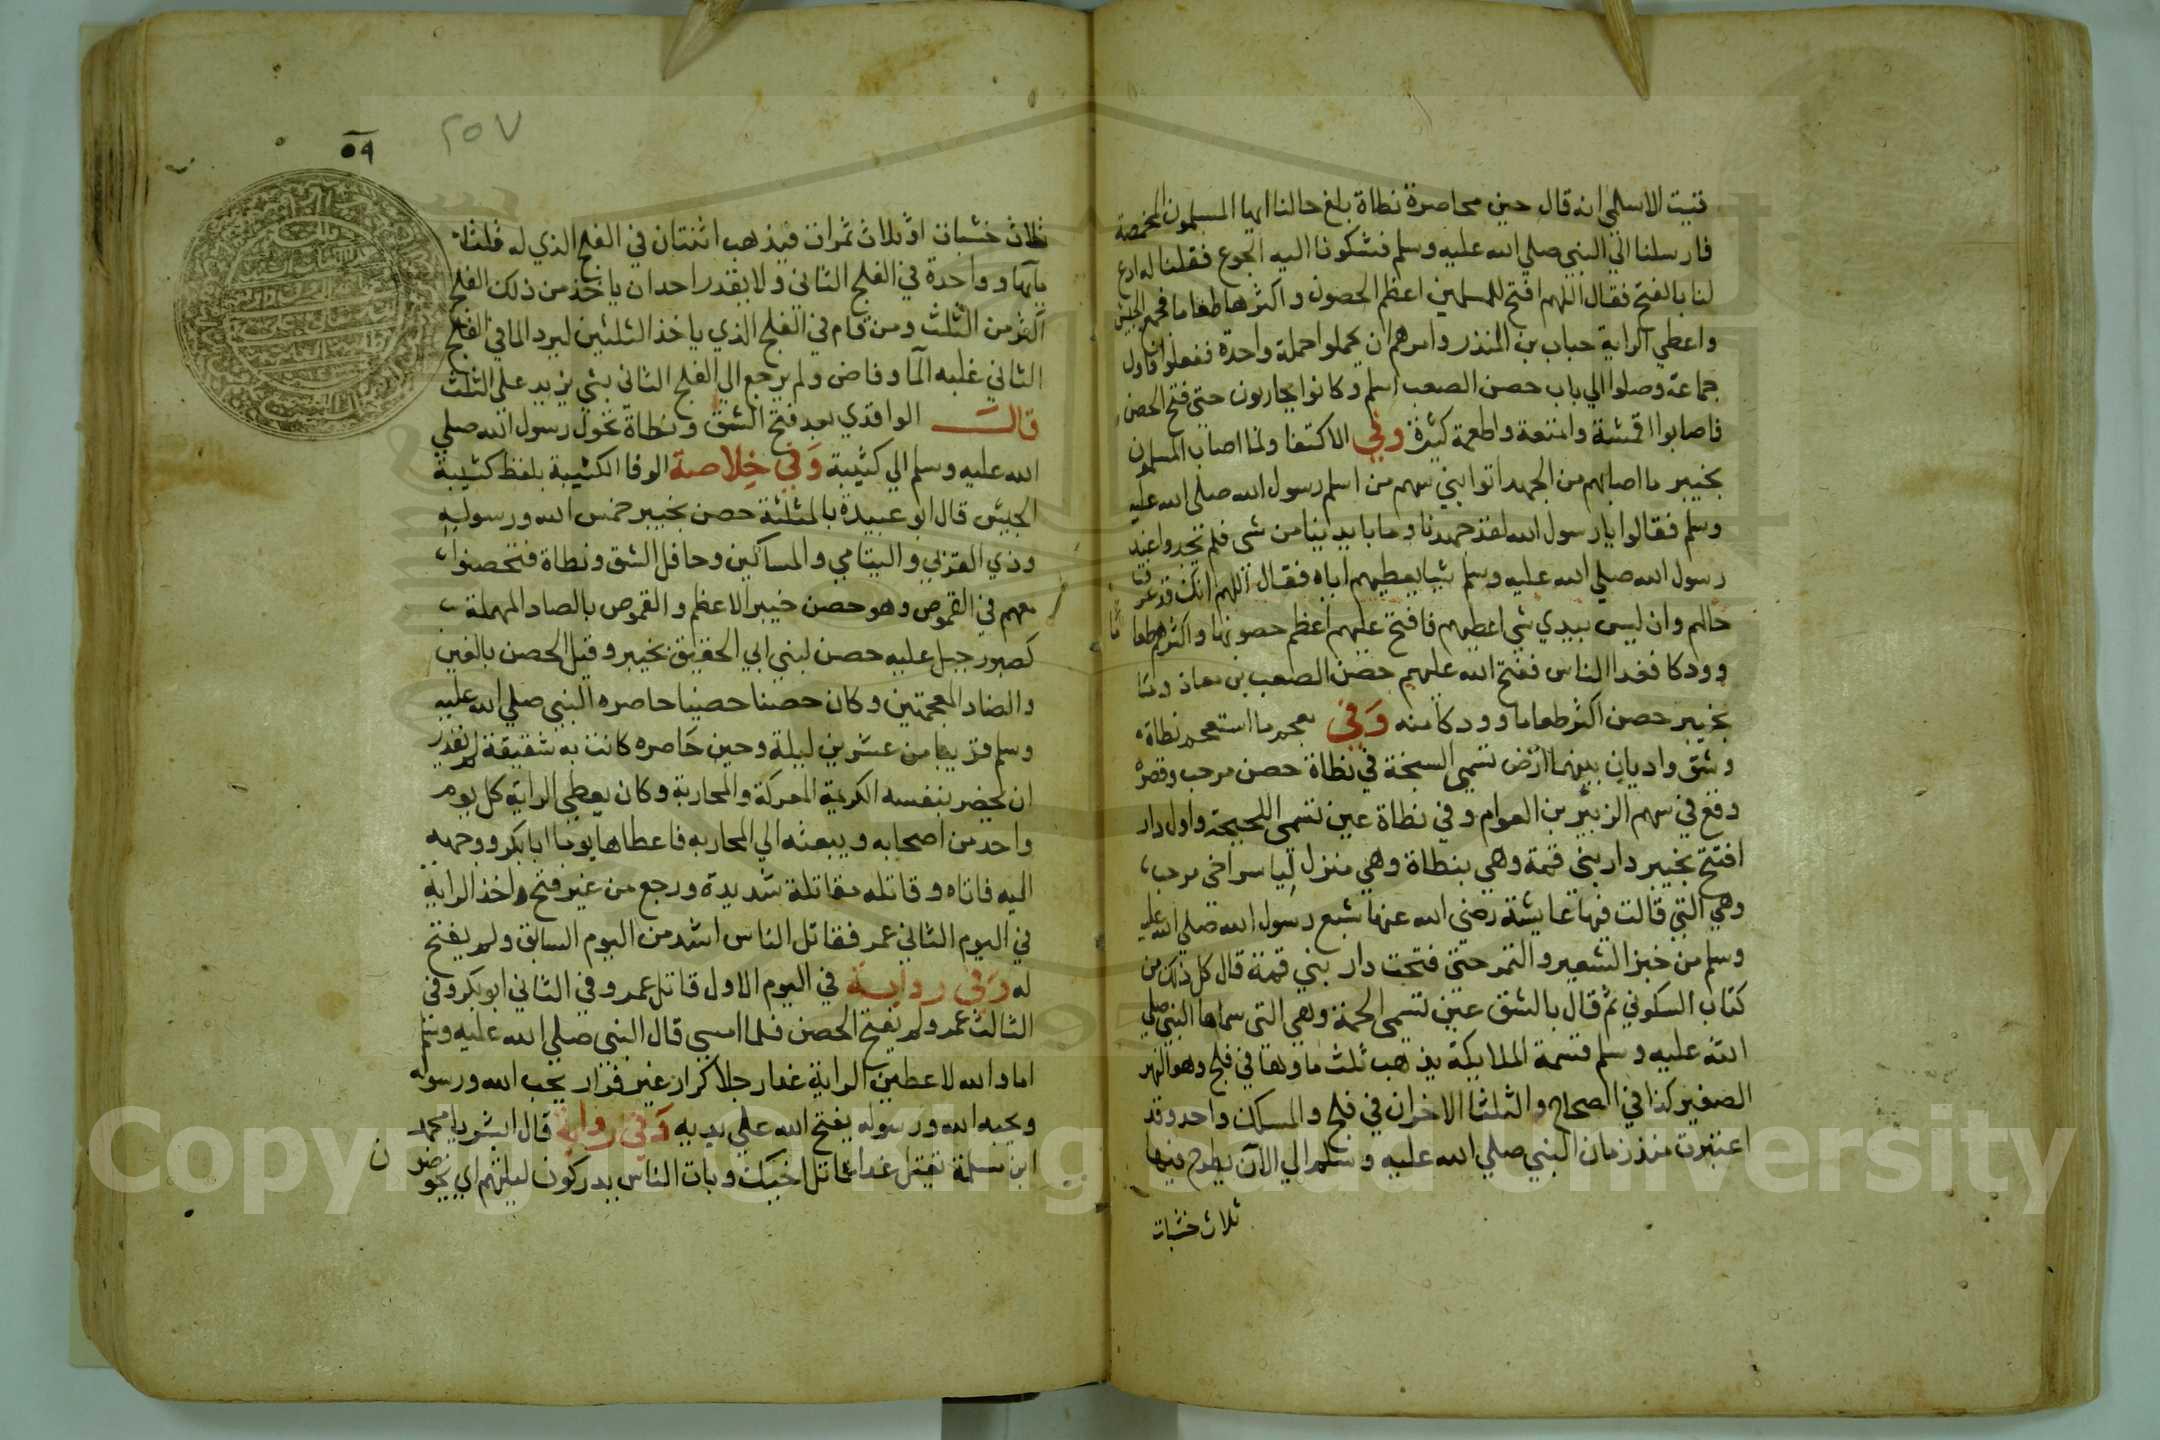 قتيت الاسلمي انه قال حين محاصرة نطاة بلغ حالنا ايها المسلمون المخمصة
فارسلنا الي النبي صلي الله عليه وسلم فشكونا اليه الجوع فقلنا له ادع
لنا بالفتح فقال اللهم افتح للمسلمين اعظم الحصون واكثرها طعاما فجهز الجيش
واعطي الراية حباب بن المنذر وامرهم ان يحملوا حملة واحدة ففعلوا فاول
جماعة وصلوا الي باب حصن الصعب اسلم وكانوا يحاربون حتي فتح الحصن
فاصابوا اقمشة وامتعة واطعمة كثيرة وفي الاكتفا ولما اصاب المسلمون
بخيبر ما اصابهم من الجهد اتوا بني سهم من اسلم رسول الله صلي الله عليه
وسلم فقالوا يارسول الله لقد جهدنا وما بايدينا من شي فلم يجدوا عند
رسول الله صلي الله عليه وسلم شيا يعطيهم اياه فقال اللهم انك قد عرفت
حالهم وان ليس بيدي شي اعطيهم فافتح عليهم اعظم حصونها واكثرهم طعاما
وودكا فغدا الناس ففتح الله عليهم حصن الصعب بن معاذ وما
بخيبر حصن اكثر طعاما وودكا منه وفي معجم ما استعجم نطاة
وشق واديان بينهما ارض تسمي السبخة في نطاة حصن مرحب وقصره
وقع في سهم الزبير بن العوام وفي نطاة عين تسمي اللحيحة واول دار
افتتح بخيبر دار بني قمة وهي بنطاة وهي منزل لياسر اخي مرحب
وهي التي قالت فيها عايشة رضي الله عنها شبع رسول الله صلي الله عليه
وسلم من خبز الشعير والتمر حتي فتحت دار بني قمة قال كل ذلك من
كتاب السكوني ثم قال بالشق عين تسمي الحمة وهي التي سماها النبي صلي
الله عليه وسلم قسمة الملايكة يذهب ثلث ماوها في فلج وهو النهر
الصغير كذا في الصحاح والثلثا الاخران في فلج والمسلك واحد وقد
اعتبرت منذ زمان النبي صلي الله عليه وسلم الي الان يطرح فيها
ثلاث خشبات
٢٥٧
٥٩
ثلاث خشبات او ثلاث تمرات فيذهب اثنتان في الفلج الذي له ثلثا
مايها وواحدة في الفلج الثاني ولا يقدر احد ان ياخذ من ذلك الفلج
اكثر من الثلث ومن قام في الفلج الذي ياخذ الثلثين ليرد الما في الفلج
الثاني غلبه الما وفاض ولم يرجع الي الفلج الثاني بشي يزيد علي الثلث
قالـــ الواقدي بعد فتح الشق ونطاة تحول رسول الله صلي
الله عليه وسلم الي كثيبة وفي خلاصة الوفا الكثيبة بلفظ كثيبة
الجيش قال ابو عبيدة بالمثلثة حصن بخيبر خمس الله ورسوله
وذي القربي واليتامي والمساكين وجا فل الشق ونطاة فتحصنوا
معهم في القموص وهو حصن خيبر الاعظم والقموص بالصاد المهملة
كصبور جبل عليه حصن لبني ابي الحقيق بخيبر وقيل الحصن بالغين
والضاد المعجمتين وكان حصنا حصينا حاصره النبي صلي الله عليه
وسلم قريبا من عشرين ليلة وحين حاصره كانت به شقيقة لم يقدر
ان يحضر بنفسه الكريمة المعركة والمحاربة وكان يعطي الراية كل يوم
واحد من اصحابه ويبعثه الي المحاربه فاعطاها يوما ابا بكر ووجهه
اليه فاتاه وقاتله مقاتلة شديدة ورجع من غير فتح واخذ الراية
في اليوم الثاني عمر فقاتل الناس اشد من اليوم السابق ولم يفتح
له وفي رواية في اليوم الاول قاتل عمر وفي الثاني ابو بكر وفي
الثالث عمر ولم يفتح الحصن فلما امسي قال النبي صلي الله عليه وسلم
اما والله لاعطين الراية غدا رجلا كرار غير فرار يحب الله ورسوله
ويحبه الله ورسوله يفتح الله علي يديه وفي رواية قال ابشر يا محمد
ابن مسلمة تقتل غدا قاتل اخيك وبات الناس يدركون ليلتهم اي يخوضون
Copyright © King Saud University